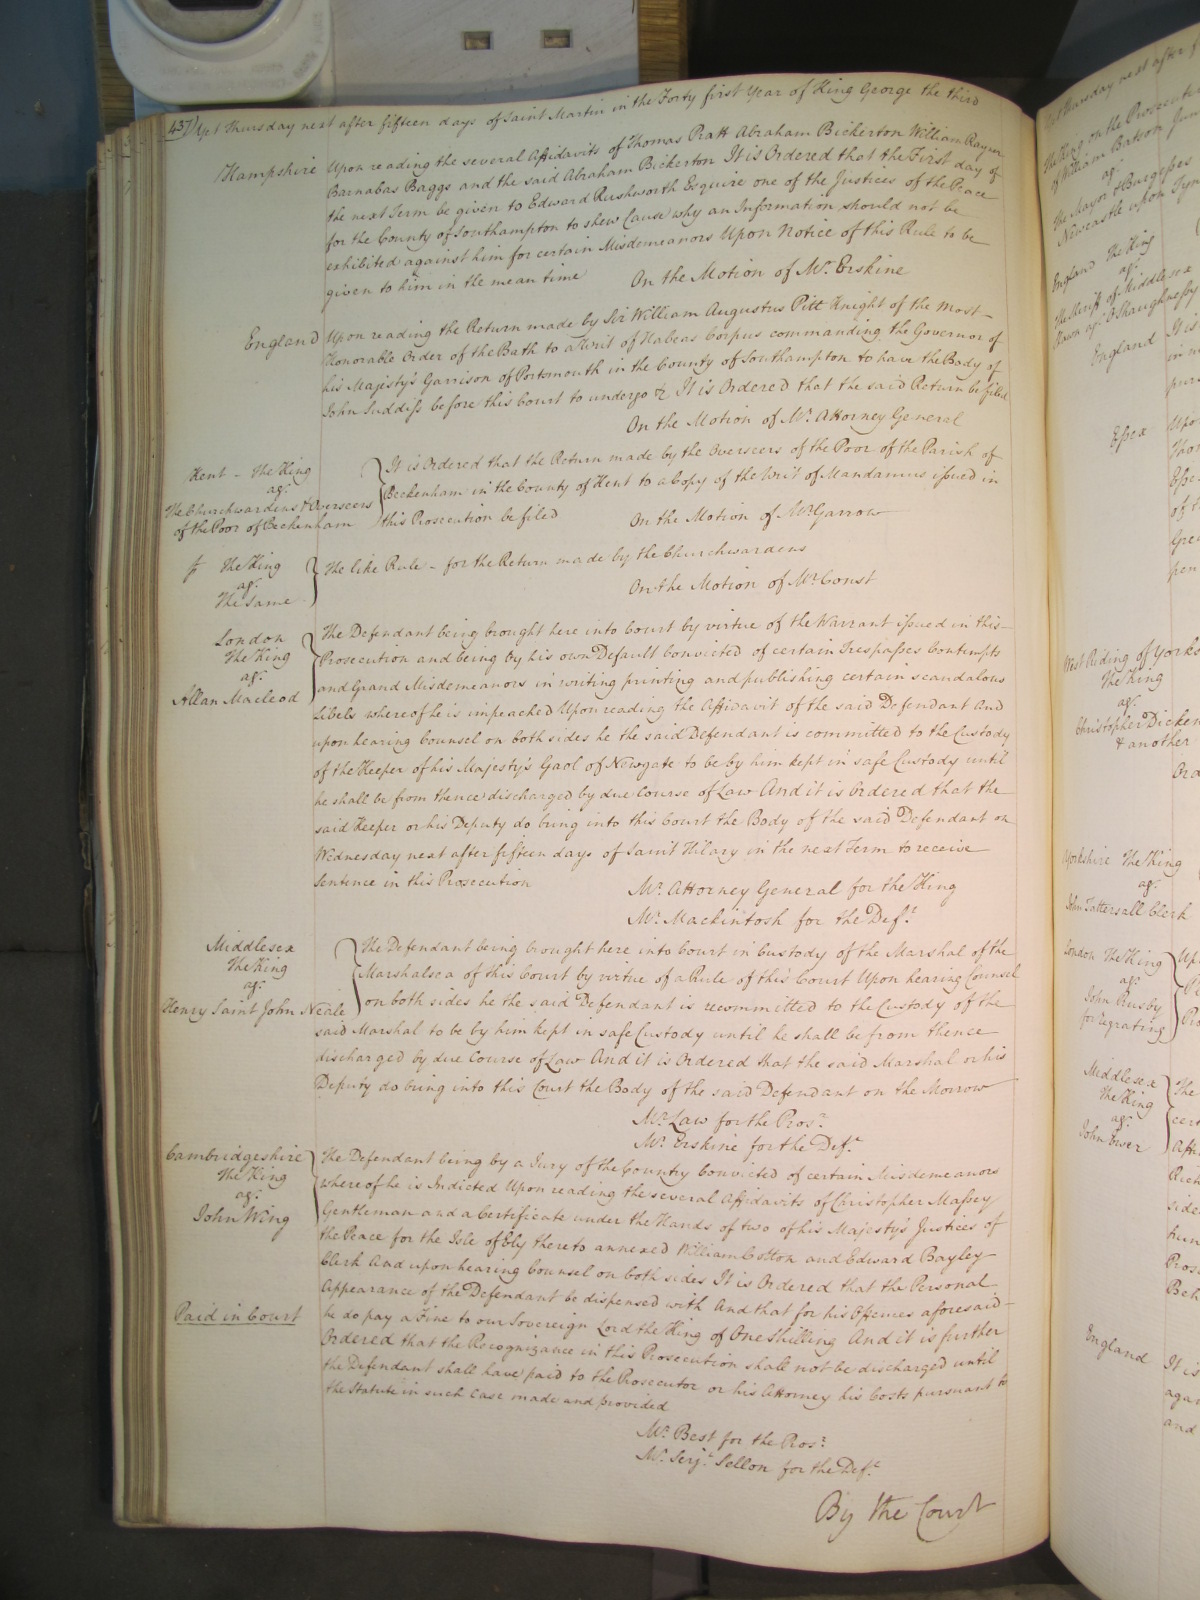 437 Yet Thursday next after fifteen days of Saint Martin in the Forty first Year of King George the third
Hampshire Upon reading the several Affidavits of Thomas Pratt Abraham Bickerton William Rayner
Barnabas Baggs and the said Abraham Bickerton It is Ordered that the First day of
the next Term be given to Edward Rushworth Esquire one of the Justices of the Peace
for the County of Southampton to shew Cause why an Information should not be
exhibited against him for certain Misdemeanors Upon Notice of this Rule to be
given to him in the mean time
On the Motion of Mr. Erskine
England Upon reading the Return made by Sir William Augustus Pitt Knight of the Most
Honorable Order of the Bath to a Writ of Habeas Corpus commanding the Governor of
his Majesty's Garrison of Portsmouth in the County of Southampton to have the Body of
John Suddiss before this Court to undergo &c It is Ordered that the said Return be filed
On the Motion of Mr. Attorney General
Kent - The King
agt.
The Churchwardens & Overseers
of the Poor of Beckenham
It is Ordered that the Return made by the Overseers of the Poor of the Parish of
Beckenham in the County of Kent to a Copy of the Writ of Mandamus issued in
this Prosecution be filed
On the Motion of Mr. Garrow
The King
agt.
The Same
The like Rule - for the Return made by the Churchwardens
On the Motion of Mr. Const
London
The King
agt.
Allan Macleod
The Defendant being brought here into Court by virtue of the Warrant issued in this
Prosecution and being by his own Default Convicted of certain Trespasses Contempts
and Grand Misdemeanors in writing printing and publishing certain scandalous
Libels whereof he is impeached Upon reading the Affidavit of the said Defendant And
upon hearing Counsel on both sides he the said Defendant is committed to the Custody
of the Keeper of his Majesty's Gaol of Newgate to be by him kept in safe Custody until
he shall be from thence discharged by due Course of Law And it is Ordered that the
said Keeper or his Deputy do bring into this Court the Body of the said Defendant on
Wednesday next after fifteen days of Saint Hilary in the next Term to receive
Sentence in this Prosecution
Mr. Attorney General for the King
Mr. Mackintosh for the Deft.
Middlesex
The King
agt.
Henry Saint John Neale
The Defendant being brought here into Court in Custody of the Marshal of the
Marshalsea of this Court by virtue of a Rule of this Court Upon hearing Counsel
on both sides he the said Defendant is recommitted to the Custody of the
said Marshal to be by him kept in safe Custody until he shall be from thence
discharged by due Course of Law And it is Ordered that the said Marshal or his
Deputy do bring into this Court the Body of the said Defendant on the Morrow
Mr. Law for the Pros.r
Mr. Erskine for the Deft.
Cambridgeshire
The King
agt.
John Wing
The Defendant being by a Jury of the Country Convicted of certain Misdemeanors
whereof he is Indicted Upon reading the several Affidavits of Christopher Massey
Gentleman and a Certificate under the Hands of two of his Majesty's Justices of
the Peace for the Isle of Ely thereto annexed William Cotton and Edward Bayley
Clerk And upon hearing Counsel on both sides It is Ordered that the Personal
Appearance of the Defendant be dispensed with And that for his Offences aforesaid
he do pay a Fine to our Sovereign Lord the King of One Shilling And it is further
Ordered that the Recognizance in this Prosecution shall not be discharged until
the Defendant shall have paid to the Prosecutor or his Attorney his Costs pursuant to
the Statute in such Case made and provided
Paid in Court
Mr. Best for the Pros.r
Mr. Serj.t Sellon for the Deft.
By the Court
Thursday next after
on the Prosecution
of William Batson
agt.
The Mayor & Burgesses
Newcastle upon Tyne
England The King
agt.
The Sheriff of Middlesex
agt. OShaughnessy
England It is
Essex Upo
West Riding of Yorks
The King
agt.
Christopher Dicken
& another
Yorkshire The King
agt.
John Tattersall Clerk
London The King
agt.
John Rusby
for regrating
Middlesex
The King
agt.
John Ewer
The
England It is
again
and